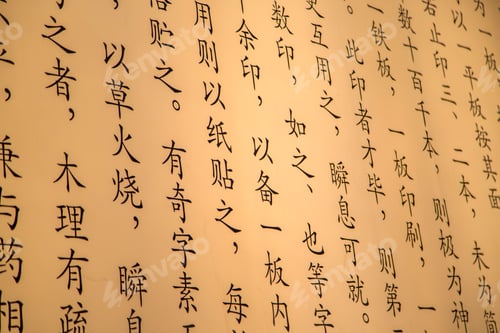 为一板
以一平板按其面
若止印三、二本，未为
数十百千本，则极为神
铁板，一板印刷，一
此印者才毕，则第
更互用之，瞬息可就。
数印，如之、也等字
十余印，以备一板内
用则以纸贴之，每
贮之。有奇字素
，以草火烧，瞬息
之者，木理有疏
，兼与药相
envato